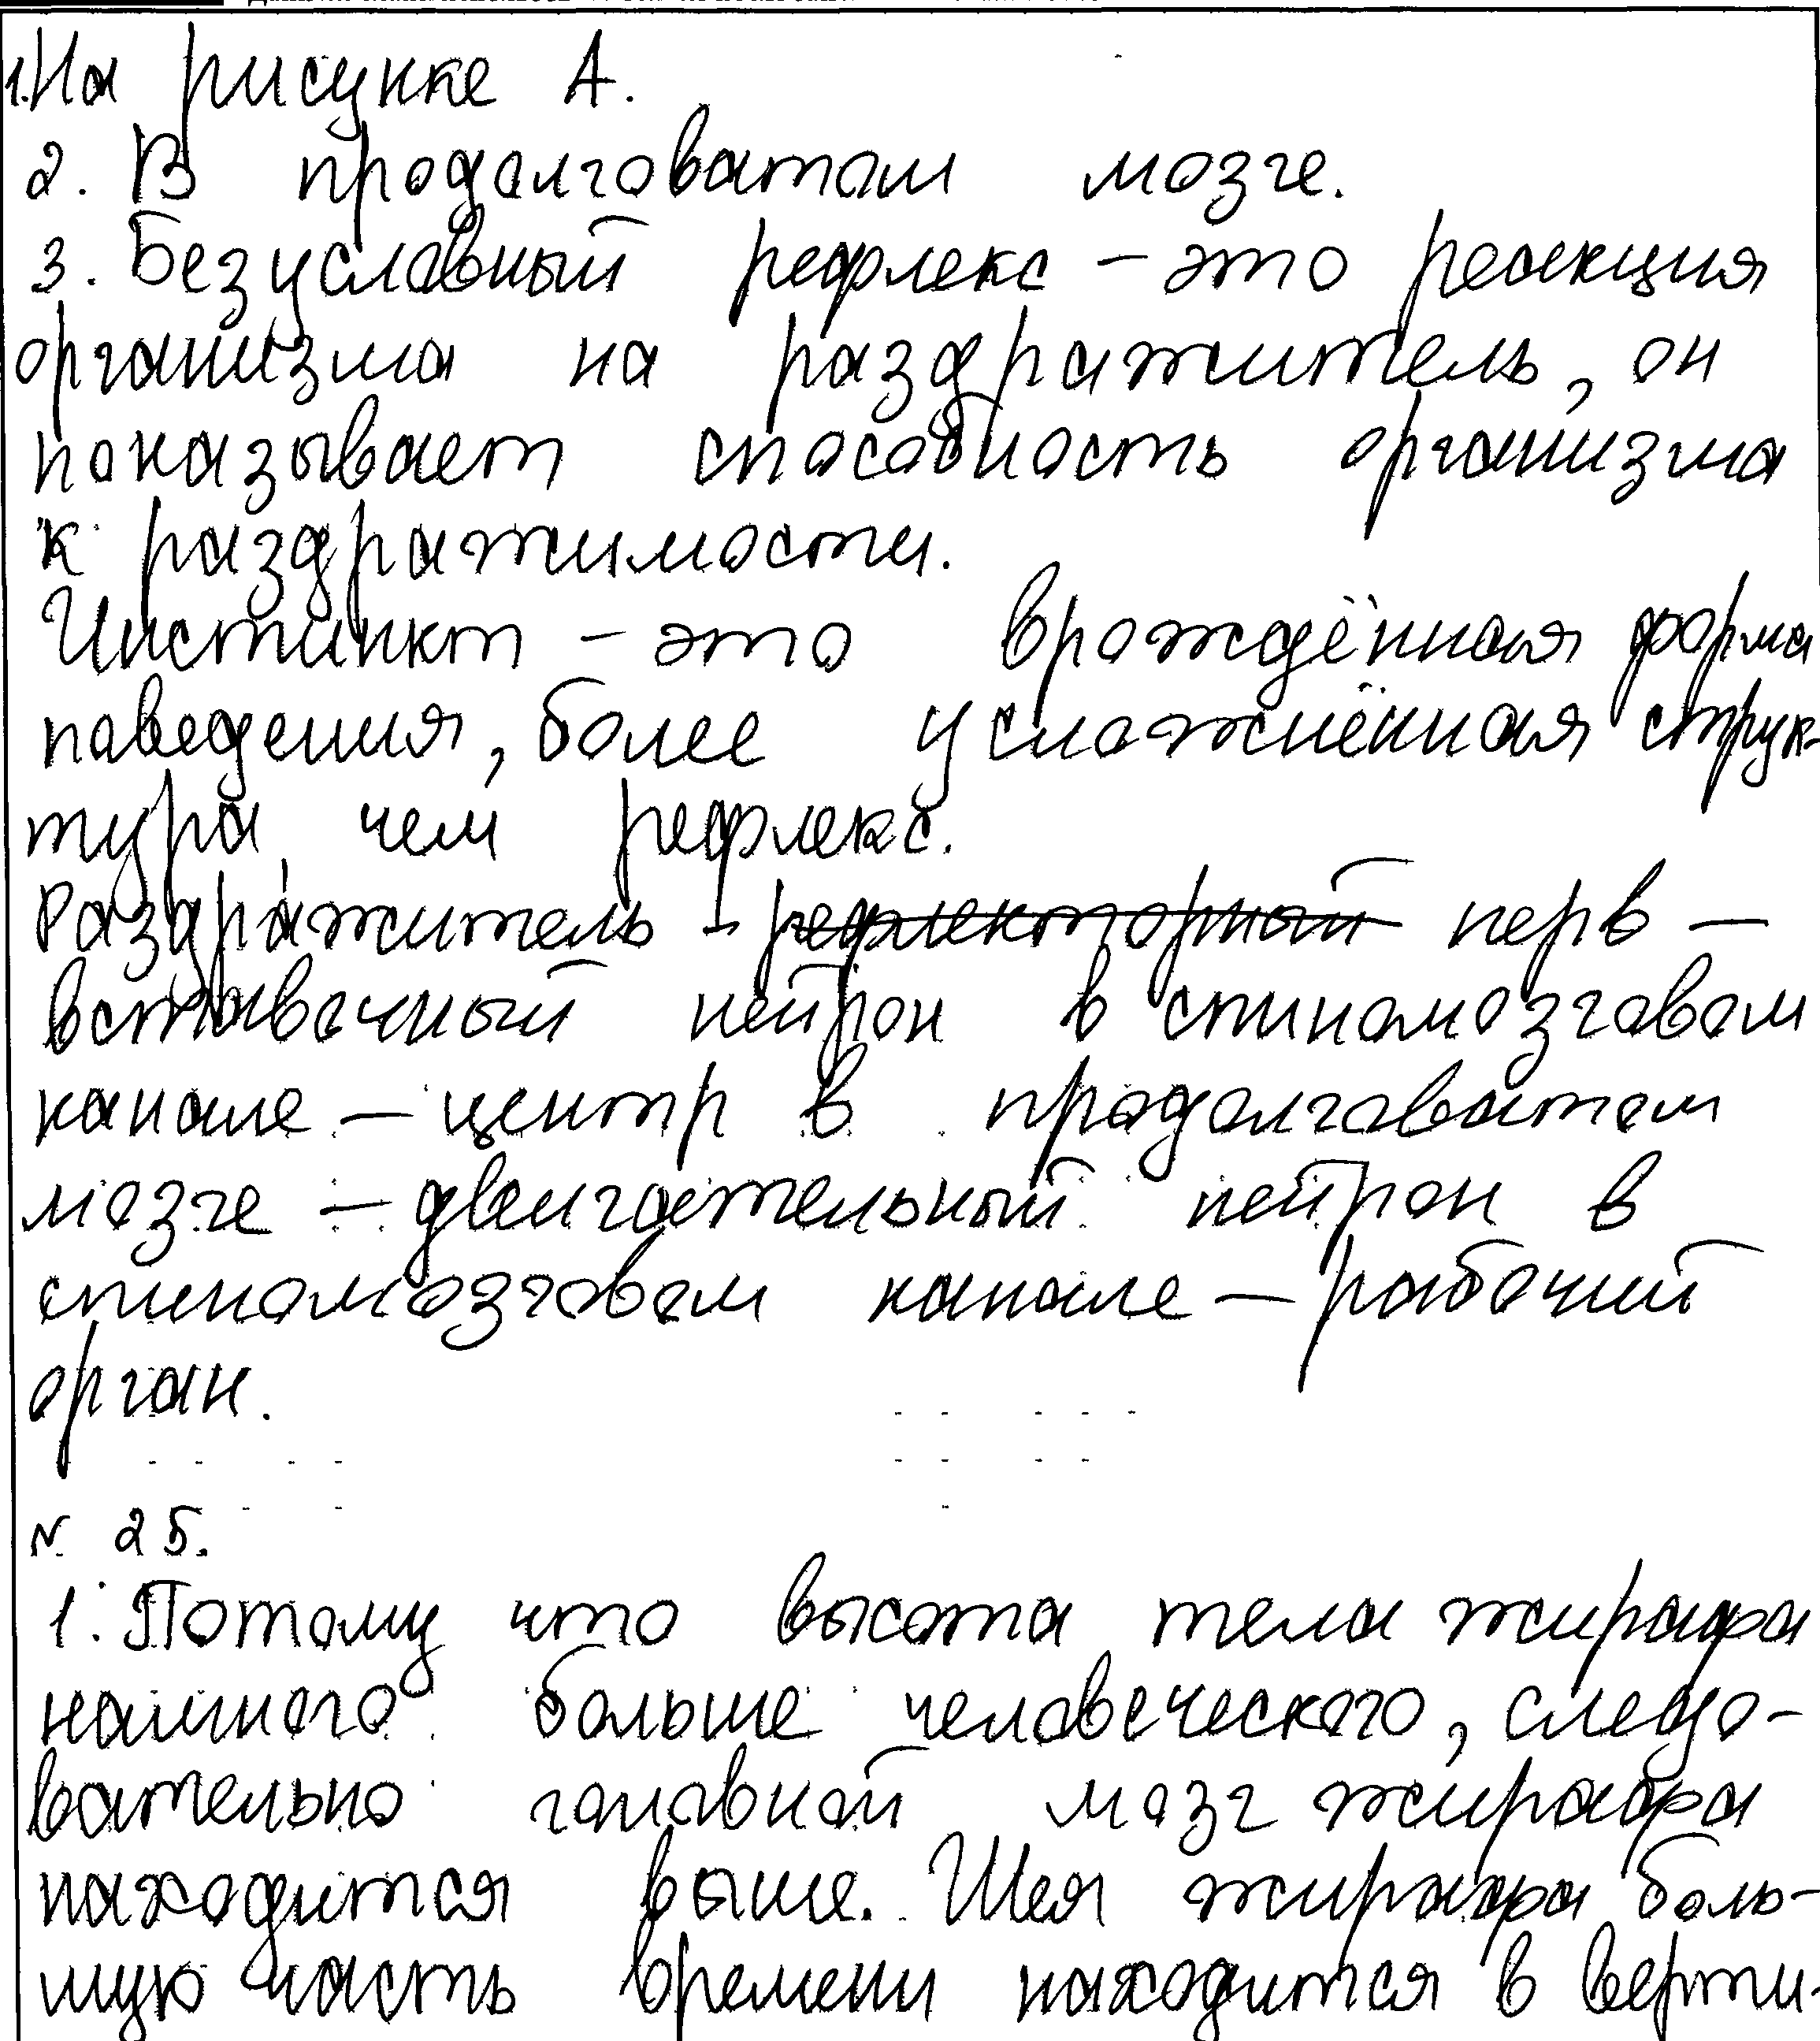 1. На рисунке А.
2. В продолговатом мозге.
3. Безусловный рефлекс - это реакция
организма на раздражитель, он
показывает способность организма
к раздражимости.
Инстинкт - это врождённая форма
поведения, более усложнённая струк-
тура, чем рефлекс.
Раздражитель - рефлекторный нерв -
вставочный нейрон в спиномозговом
канале - центр в продолговатом
мозге - двигательный нейрон в
спиномозговом канале - рабочий
орган.
№ 25.
1. Потому что высота тела жирафа
намного больше человеческого, следо-
вательно головной мозг жирафа
находится выше. Шея жирафа боль-
шую часть времени находится в верти-